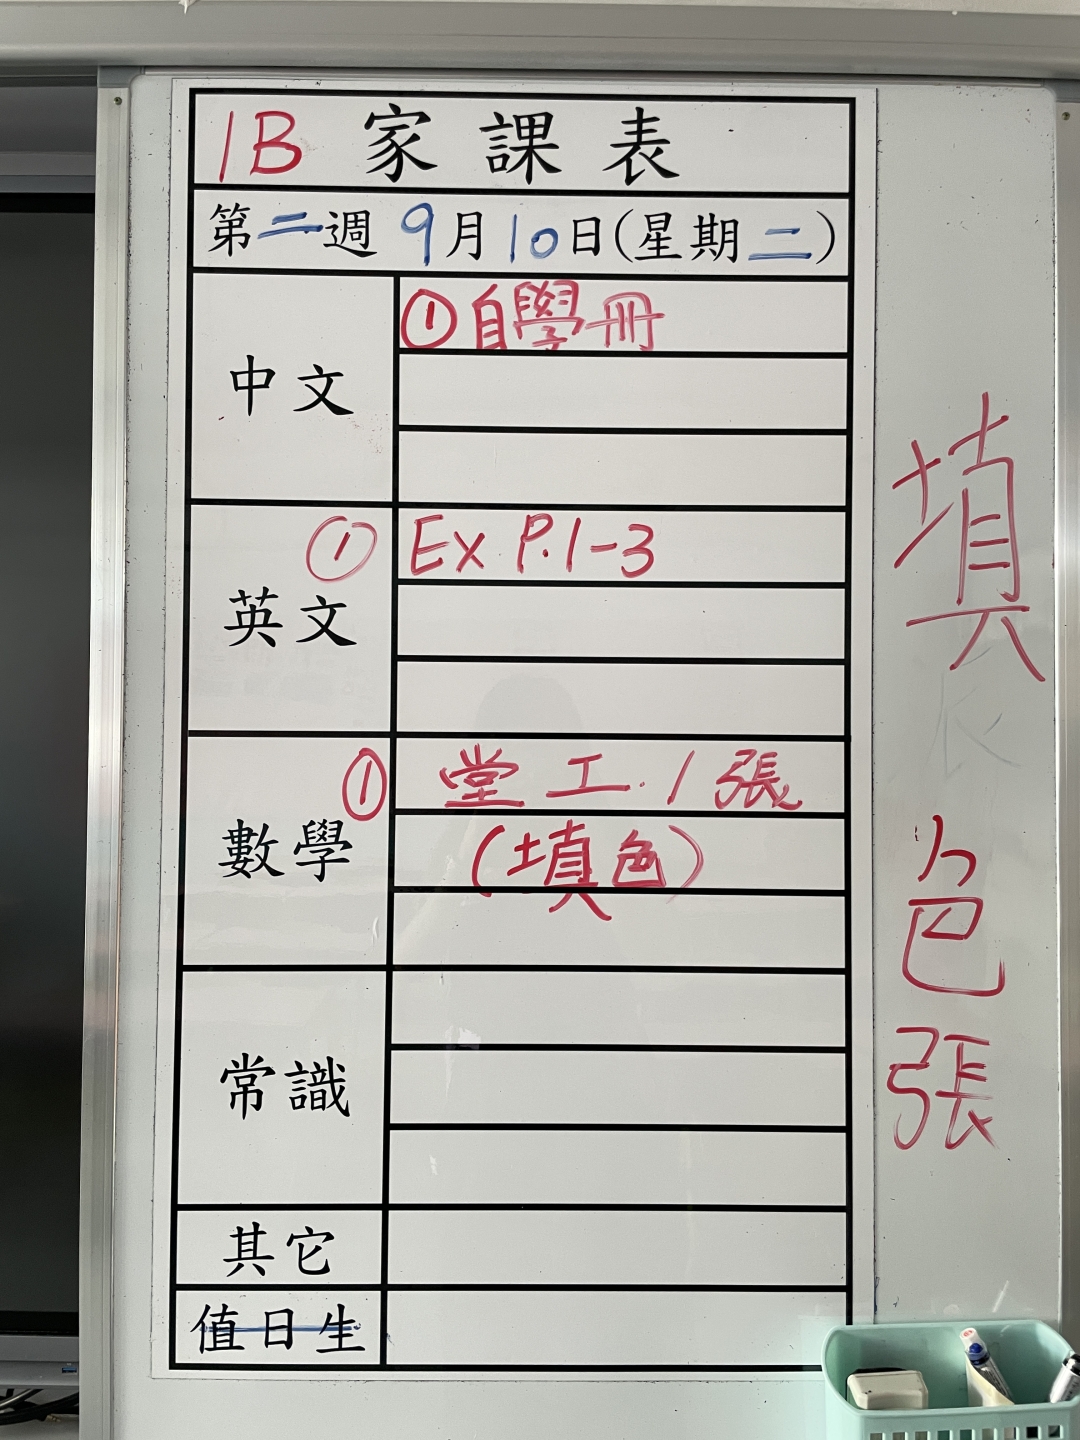 1B 家課表
第二週 9月10日(星期二)
中文
① 自學冊
英文
① Ex P.1-3
數學
① 堂工.1張
(填色)
常識
其它
值日生
填
色
張